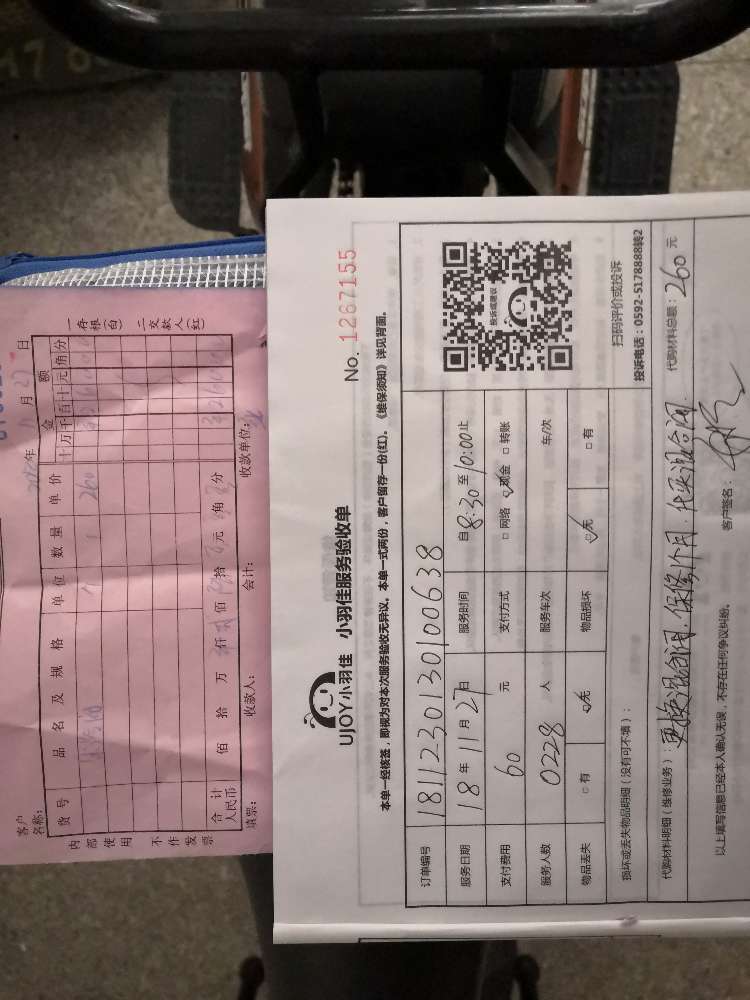 No. 1267155
UJOY小羽佳 小羽佳服务验收单
本单一经核签，即视为对本次服务验收无异议。本单一式两份，客户留存一份(红)。《维保须知》详见背面。
订单编号 1811230130100638
服务日期 18年11月27日 服务时间 自8:30至10:00止
支付费用 60 元 支付方式 □ 网络 ☑ 现金 □ 转账
服务人数 0228 人 服务车次 车/次
物品丢失 □ 有 ☑ 无 物品损坏 ☑ 无 □ 有
投诉或建议
扫码评价或投诉
投诉电话：0592-5178888转2
损坏或丢失物品明细（没有可不填）：
代购材料明细（维修业务）：更换混合阀.保修1个月.代买混合阀. 代购材料总额：260 元
以上填写信息已经本人确认无误，不存在任何争议纠纷。 客户签名：
客户名称：
年11月27日
货号 品名及规格 单位 数量 单价 金额
十万千百十元角分
个 1 260
合计人民币 佰 拾 万 仟 佰 拾 元 角 分
填票： 收款人： 会计： 收款单位：
内部使用 不作发票
一存根（白） 二交款人（红）